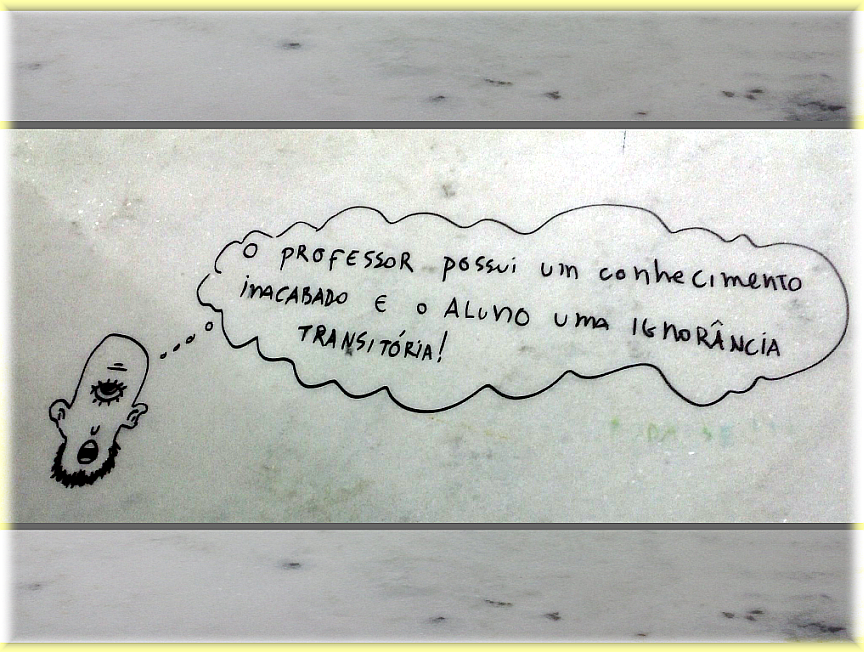 O PROFESSOR possui um conhecimento
INACABADO E o ALUNO UMA IGNORÂNCIA
TRANSITÓRIA!